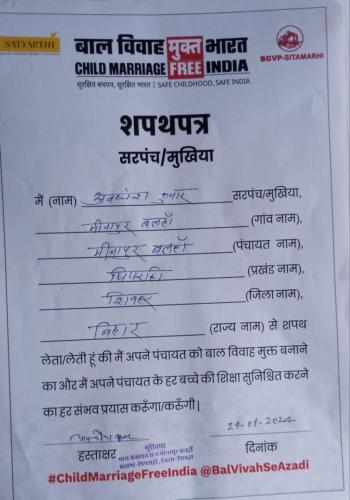 SATYARTHI
बाल विवाह मुक्त भारत
CHILD MARRIAGE FREE INDIA
सुरक्षित बचपन, सुरक्षित भारत | SAFE CHILDHOOD, SAFE INDIA
BGVP-SITAMARHI
शपथपत्र
सरपंच/मुखिया
मैं (नाम) अवधेश कुमार सरपंच/मुखिया,
मीनापुर बलहाँ (गांव नाम),
मीनापुर बलहाँ (पंचायत नाम),
पिपराही (प्रखंड नाम),
शिवहर (जिला नाम),
बिहार (राज्य नाम) से शपथ
लेता/लेती हूं की मैं अपने पंचायत को बाल विवाह मुक्त बनाने
का और मैं अपने पंचायत के हर बच्चे की शिक्षा सुनिश्चित करने
का हर संभव प्रयास करूँगा/करुँगी|
29-01-2024
मुखिया
ग्राम पंचायत राज मीनापुर बलहाँ
प्रखण्ड-पिपराही, जिला-शिवहर
हस्ताक्षर दिनांक
#ChildMarriageFreeIndia @BalVivahSeAzadi